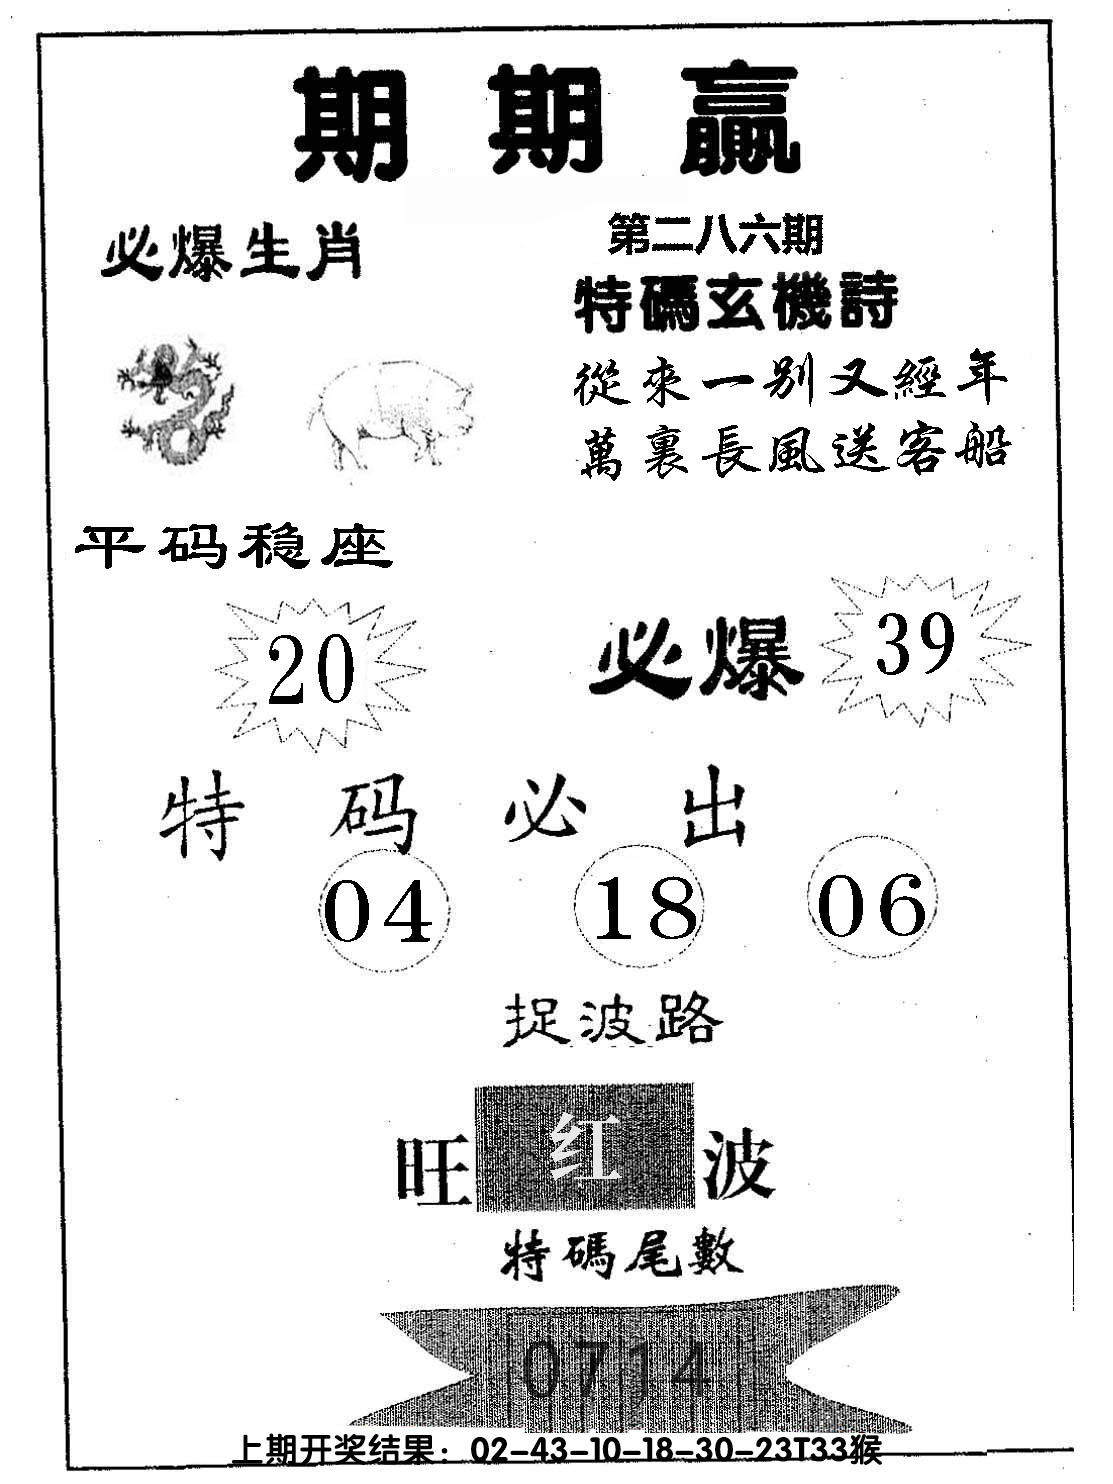 期期贏
必爆生肖
第二八六期
特碼玄機詩
從來一别又經年
萬裏長風送客船
平码稳座
20
必爆
39
特码必出
04 18 06
捉波路
旺红波
特碼尾數
0714
上期开奖结果：02-43-10-18-30-23T33猴